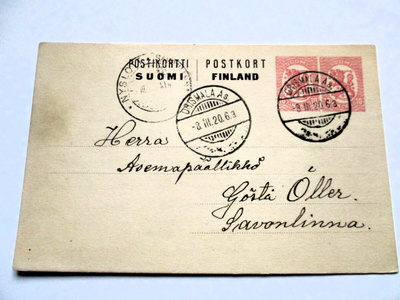 POSTIKORTTI | POSTKORT
SUOMI | FINLAND
NYSLO
-8.III.20.6.a
-8.III.20.6.a
Herra
Asemapäällikkö
Gösta Öller.
Savonlinna.